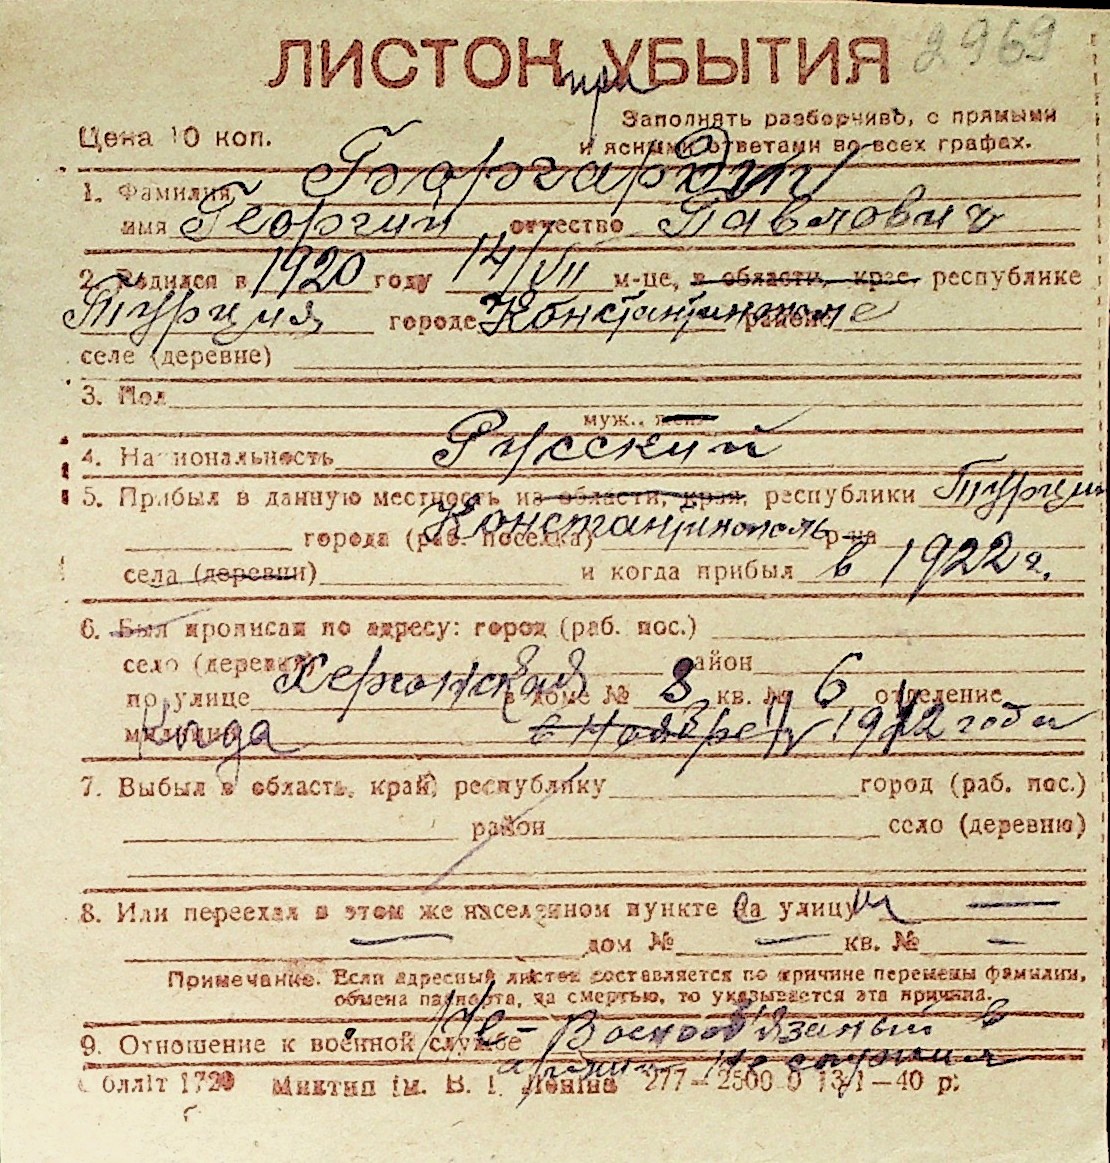 2969
ЛИСТОК УБЫТИЯ
при
Цена 10 коп.
Заполнять разборчиво, с прямыми
и ясными ответами во всех графах.
1. Фамилия
имя Георгий отчество Павлович
2. Родился в 1920 году 14/VII м-це, в области, крае, республике
Турция городе Константинополе районе
селе (деревне)
3. Пол
муж., жен.
4. Национальность Русский
5. Прибыл в данную местность из области, края, республики Турции
города (раб. поселка) Константинополь р-на
села (деревни) и когда прибыл в 1922 г.
6. Был прописан по адресу: город (раб. пос.)
село (деревня) район
по улице Херсонская в доме № 8 кв. № 6 отделение
милиции в Ноябре 1922 года
7. Выбыл в область, край, республику город (раб. пос.)
район село (деревню)
8. Или переехал в этом же населенном пункте на улицу
дом № кв. №
Примечание. Если адресный листок составляется по причине перемены фамилии,
обмена паспорта, за смертью, то указывается эта причина.
9. Отношение к военной службе Не-Военнообязаный в
армии не служил
Облліт 1720 Миктип ім. В. І. Леніна 277—2500 0 13/1—40 р.